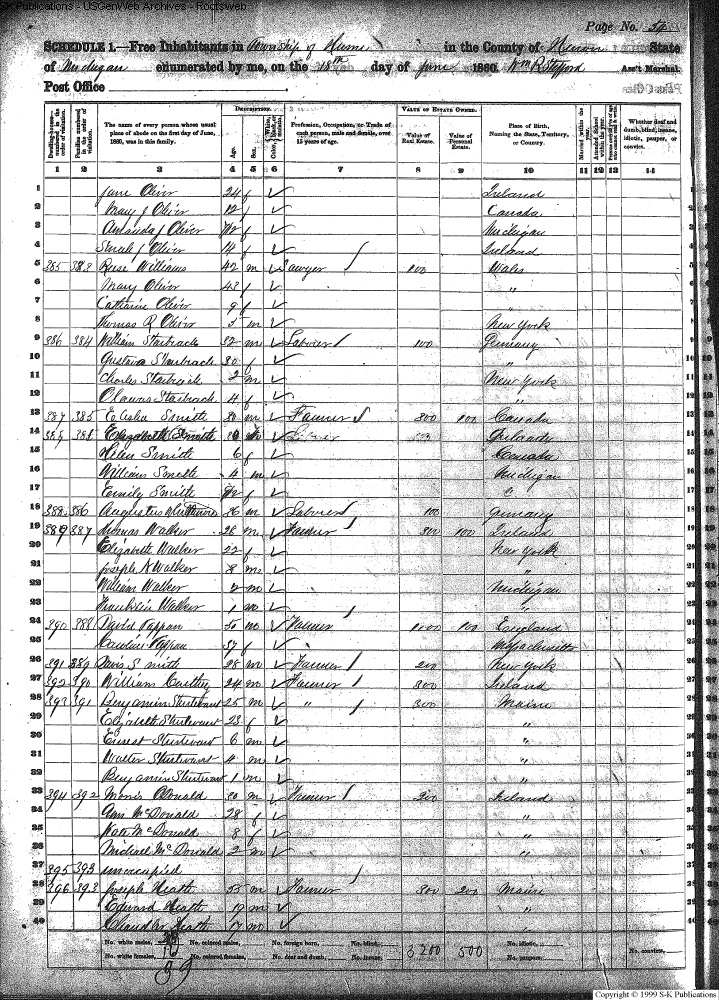 S-K Publications - USGenWeb Archives - Rootsweb
Page No. 54
SCHEDULE 1.—Free Inhabitants in Township of Hume in the County of Huron State
of Michigan enumerated by me, on the 18th day of June 1860. Wm R Stafford Ass't Marshal.
Post Office
Dwelling-houses—numbered in the order of visitation. Families numbered in the order of visitation. The name of every person whose usual place of abode on the first day of June, 1860, was in this family. DESCRIPTION. Age. Sex. Color, White, black, or mulatto. Profession, Occupation, or Trade of each person, male and female, over 15 years of age. VALUE OF ESTATE OWNED. Value of Real Estate. Value of Personal Estate. Place of Birth, Naming the State, Territory, or Country. Married within the year. Attended School within the year. Whether deaf and dumb, blind, insane, idiotic, pauper, or convict.
1 2 3 4 5 6 7 8 9 10 11 12 13 14
1 Jane Oliver 24 f Ireland
2 Mary J Oliver 12 f Canada
3 Amanda J Oliver f Michigan
4 Sarah J Oliver 14 f Ireland
5 385 383 Rese Williams 42 m Sawyer 100 Wales
6 Mary Oliver 43 f "
7 Catharine Oliver 9 f "
8 Thomas R Oliver 5 m New York
9 386 384 William Starback 32 m Laborer 100 Germany
10 Gustava Starback 30 f "
11 Charles Starback 2 m New York
12 Starback 4 f "
13 387 385 Smith 30 m Farmer 800 100 Canada
14 Elizabeth Smith Ireland
15 Helen Smith 6 f Canada
16 William Smith 4 m Michigan
17 Emily Smith f "
18 388 386 Augustus 36 m Laborer 100 Germany
19 389 387 Thomas Walker 28 m Farmer 300 100 Ireland
20 Elizabeth Walker 22 f New York
21 Joseph N Walker 8 m "
22 William Walker 2 m Michigan
23 Franklin Walker 1 m "
24 390 388 David Pappan 50 m Farmer 1000 100 England
25 Caroline Pappan 57 f Massachusetts
26 391 389 Davis Smith 28 m Farmer 200 New York
27 392 390 William Carthy 24 m Farmer 300 Ireland
28 393 391 Benjamin Sturtevant 25 m " 300 Maine
29 Elizabeth Sturtevant 23 f "
30 Ernest Sturtevant 6 m "
31 Walter Sturtevant 4 m "
32 Benjamin Sturtevant 1 m "
33 394 392 Morris O'Donald 30 m Farmer 200 Ireland
34 Ann McDonald 28 f "
35 Kate McDonald 8 f "
36 Michael McDonald 2 m "
37 395 393 unoccupied
38 396 393 Joseph Heath 55 m Farmer 300 200 Maine
39 Edward Heath 19 m "
40 Chandler Heath 17 m "
No. white males, No. colored males, No. foreign born, No. blind, 3200 500 No. idiotic, No. convicts,
No. white females, No. colored females, No. deaf and dumb, No. insane, No. paupers,
39
Copyright © 1999 S-K Publications